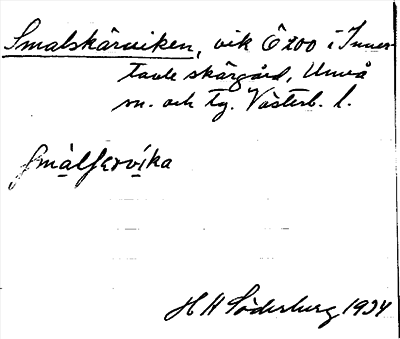 Smalskärviken, vik Ö 200 i Inner-
tavle skärgård, Umeå
sn. och tg. Västerb. l.
smàlʃęrvíka
H H Söderburg 1934